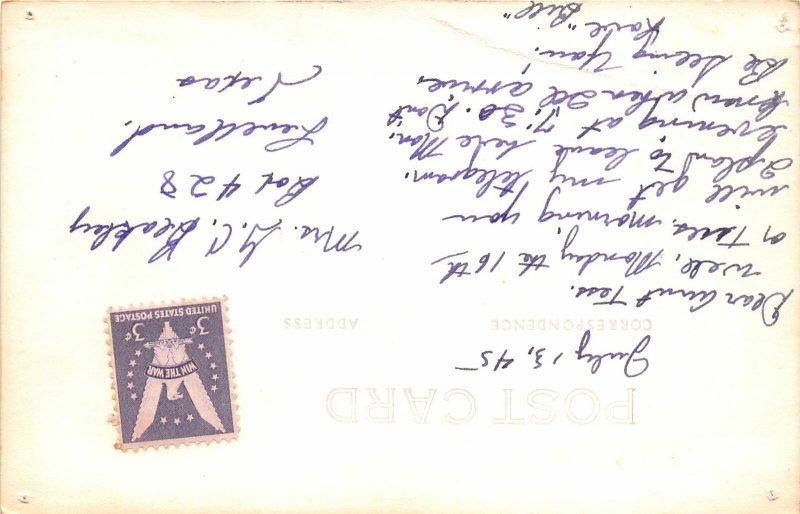 POST CARD
July 13, 45
CORRESPONDENCE
Dear Aunt Tess.
Well, Monday, the 16th
or Tues. morning you
will get my telegram.
I plan to leave here Mon.
evening at 7:30. Don't
know when I'll arrive.
Be seeing you.
Love "Bill"
ADDRESS
Mrs. G. C. Beakley
Box 428
Levelland,
Texas
WIN THE WAR
3¢ 3¢
UNITED STATES POSTAGE